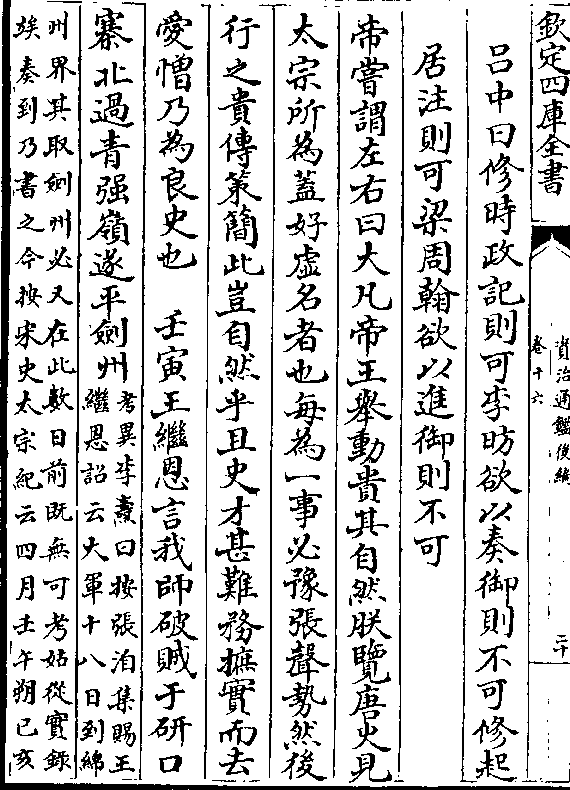 欽定四庫全書
資治通鑑後編
卷十六
二十
呂中曰修時政記則可李昉欲以奏御則不可修起
居注則可梁周翰欲以進御則不可
帝嘗謂左右曰大凡帝王舉動貴其自然朕覽唐史見
太宗所為蓋好虛名者也每為一事必豫張聲勢然後
行之貴傳策簡此豈自然乎且史才甚難務摭實而去
愛憎乃為良史也　壬寅王繼恩言我師破賊于研口
寨北過青强嶺遂平劍州
考異李燾曰按張洎集賜王
繼恩詔云大軍十八日到綿
州界其取劍州必又在此數日前既無可考姑從實錄
埃奏到乃書之今按宋史太宗紀云四月壬午朔己亥